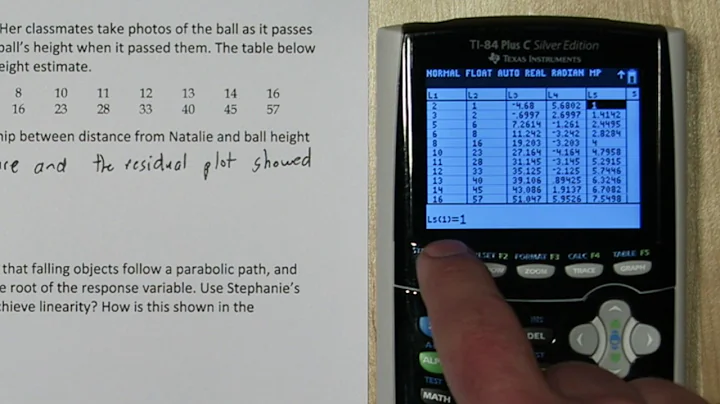 Her classmates take photos of the ball as it passes
ball's height when it passed them. The table below
eight estimate.
8 10 11 12 13 14 16
16 23 28 33 40 45 57
hip between distance from Natalie and ball height
and the residual plot showed
that falling objects follow a parabolic path, and
e root of the response variable. Use Stephanie's
chieve linearity? How is this shown in the
TI-84 Plus C Silver Edition
TEXAS INSTRUMENTS
NORMAL FLOAT AUTO REAL RADIAN MP
L1 L2 L3 L4 L5 S
2 1 -4.68 5.6802 1
3 2 -.6997 2.6997 1.4142
5 6 7.2614 -1.261 2.4495
6 8 11.242 -3.242 2.8284
8 16 19.203 -3.203 4
10 23 27.164 -4.164 4.7958
11 28 31.145 -3.145 5.2915
12 33 35.125 -2.125 5.7446
13 40 39.106 .89425 6.3246
14 45 43.086 1.9137 6.7082
16 57 51.047 5.9526 7.5498
L5(1)=1
F2 FORMAT F3 CALC F4 TABLE F5
ZOOM TRACE GRAPH
INS
DEL
ALP
TEST
MATH